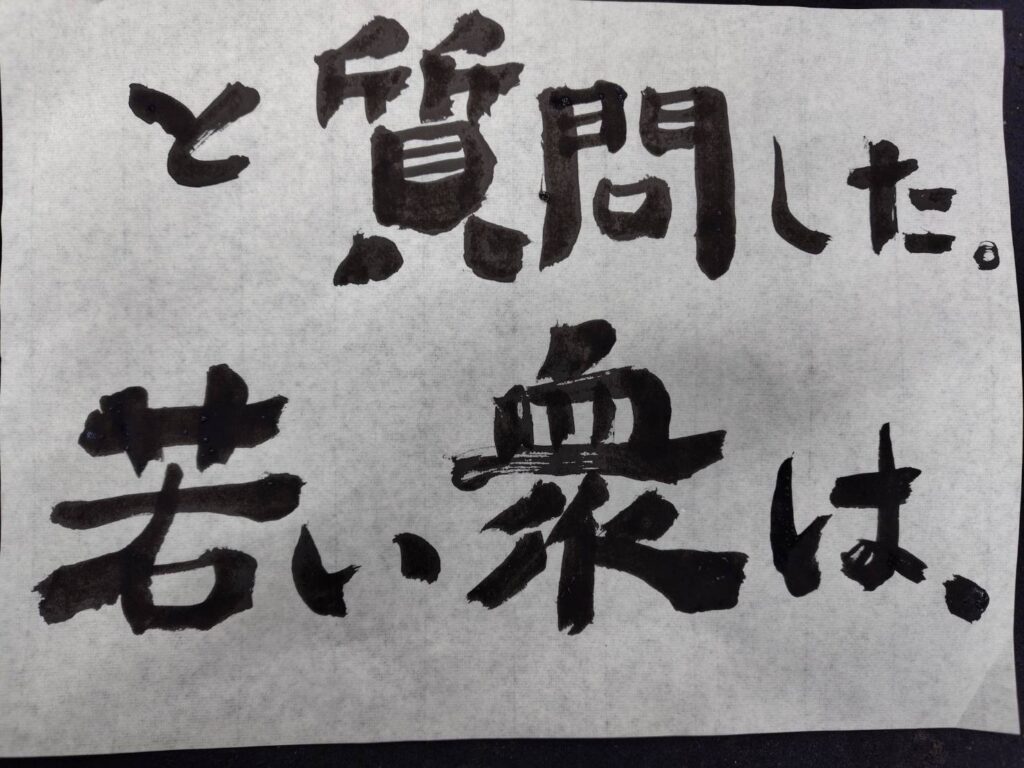 と質問した。
若い衆は、